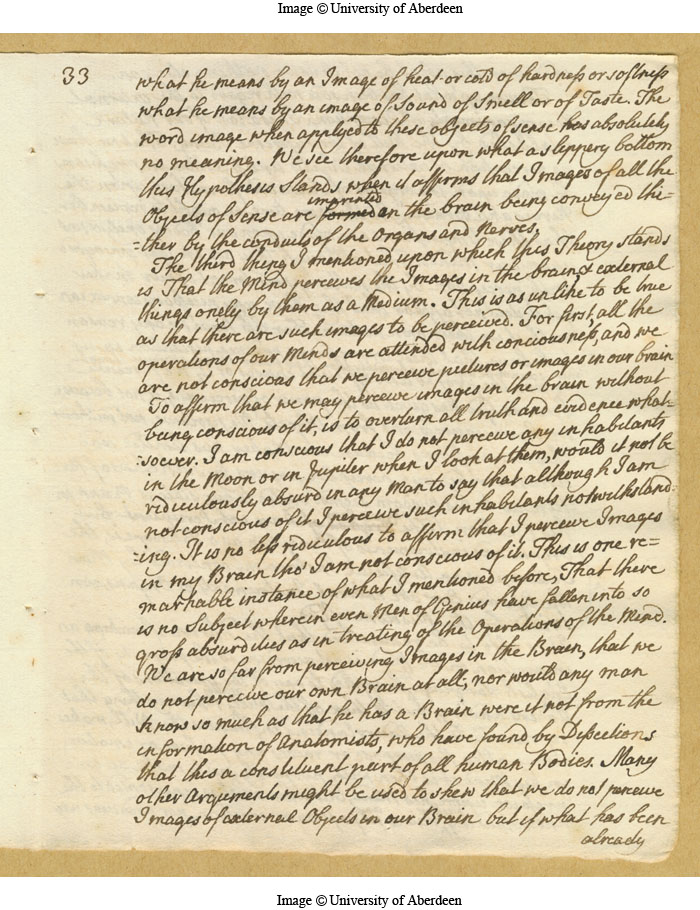 Image © University of Aberdeen
33
what he means by an Image of heat or cold of hardness or softness
what he means by an image of Sound of Smell or of Taste. The
word image when applyed to these objects of sense has absolutely
no meaning. We see therefore upon what a slippery bottom
this Hypothesis Stands when it affirms that Images of all the
imprinted
Objects of Sense are formed on the brain being conveyed thi=
=ther by the conduits of the Organs and Nerves,
The third thing I mentioned upon which this Theory stands
is That the Mind perceives the Images in the brain & external
things onely by them as a Medium. This is as unlike to be true
as that there are such images to be perceived. For first, all the
operations of our Minds are attended with conciousness, and we
are not conscious that we perceive pictures or images in our brain
To affirm that we may perceive images in the brain without
being conscious of it, is to overturn all truth and evidence what=
=soever. I am conscious that I do not perceive any inhabitants
in the Moon or in Jupiter when I look at them, would it not be
ridiculously absurd in any Man to say that although I am
not conscious of it I perceive such inhabitants notwithstand=
=ing. It is no less ridiculous to affirm that I perceive Images
in my Brain tho' I am not conscious of it. This is one re=
markable instance of what I mentioned before, That there
is no Subject wherein even Men of Genius have fallen into so
gross absurdities as in treating of the Operations of the Mind.
We are so far from perceiving Images in the Brain, that we
do not perceive our own Brain at all; nor would any man
know so much as that he has a Brain were it not from the
information of Anatomists, who have found by Dissections
that this a constituent part of all human Bodies. Many
other Arguments might be used to shew that we do not perceive
Images of external Objects in our Brain but if what has been
already
Image © University of Aberdeen